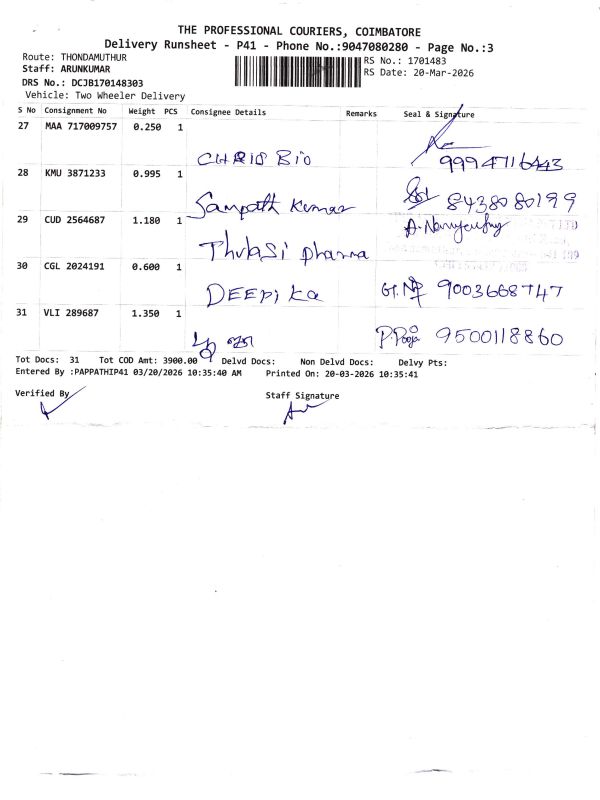 THE PROFESSIONAL COURIERS, COIMBATORE
Delivery Runsheet - P41 - Phone No.:9047080280 - Page No.:3
Route: THONDAMUTHUR
RS No.: 1701483
Staff: ARUNKUMAR
RS Date: 20-Mar-2026
DRS No.: DCJB170148303
Vehicle: Two Wheeler Delivery
S No Consignment No Weight PCS Consignee Details Remarks Seal & Signature
27 MAA 717009757 0.250 1
CHRIS Bio 9994716443
28 KMU 3871233 0.995 1
Sampath Kumar 8438080199
29 CUD 2564687 1.180 1
Thulasi pharma
30 CGL 2024191 0.600 1
DEEPIKA 9003668747
31 VLI 289687 1.350 1
P.Pooja 9500118860
Tot Docs: 31 Tot COD Amt: 3900.00 Delvd Docs: Non Delvd Docs: Delvy Pts:
Entered By :PAPPATHIP41 03/20/2026 10:35:40 AM Printed On: 20-03-2026 10:35:41
Verified By Staff Signature